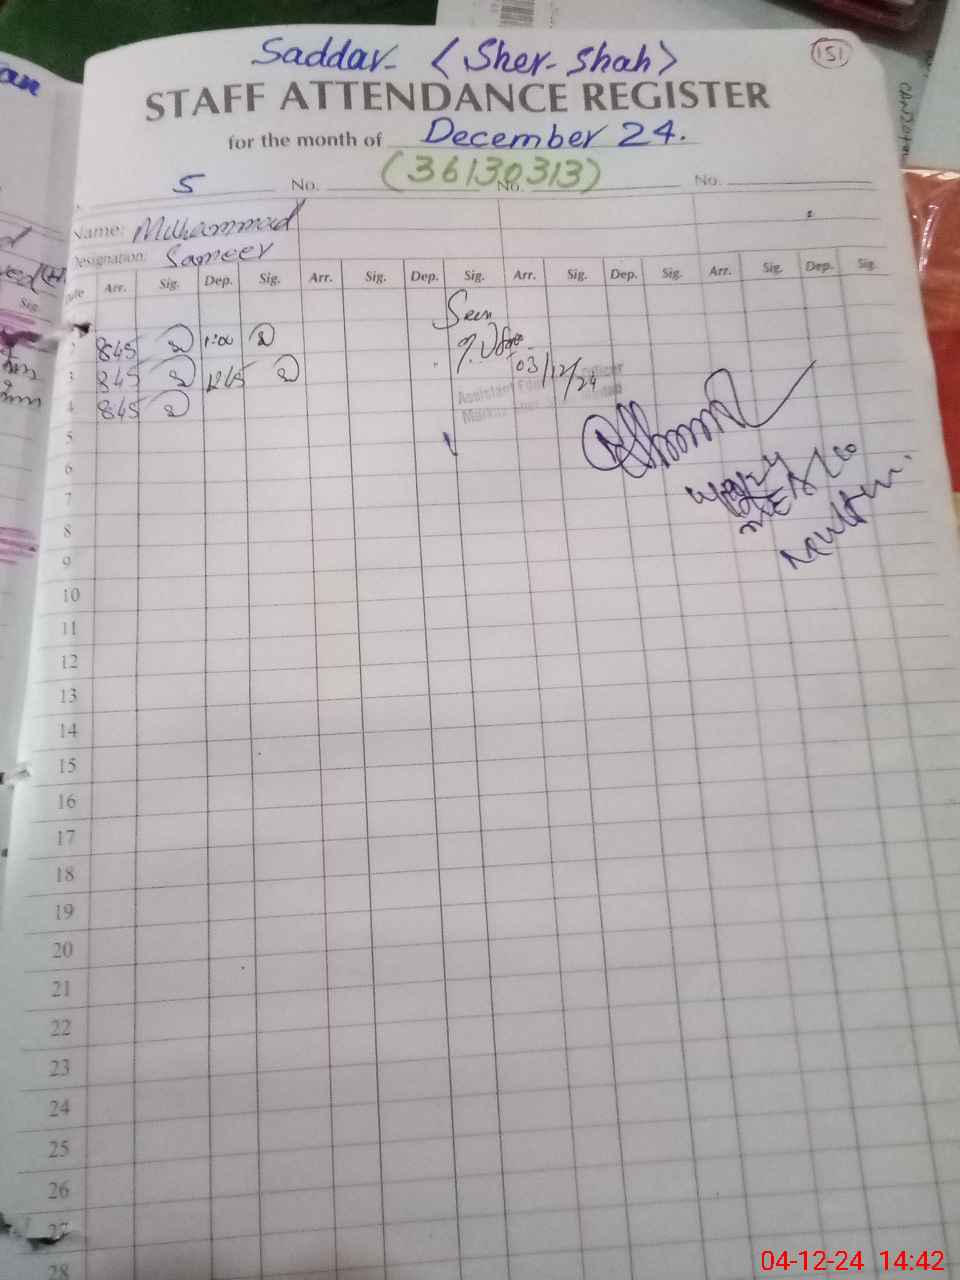 Saddar- (Sher-Shah)
151
STAFF ATTENDANCE REGISTER
for the month of December 24.
(36130313)
5 No. No. No.
Name: Muhammad
Designation: Sameer
Date Arr. Sig. Dep. Sig. Arr. Sig. Dep. Sig. Arr. Sig. Dep. Sig. Arr. Sig. Dep. Sig.
Seen
2 845 1:00
3 845 1245
03/12/24
Assistant Officer
4 845
5
6
7
8
9
10
11
12
13
14
15
16
17
18
19
20
21
22
23
24
25
26
27
28
04-12-24 14:42